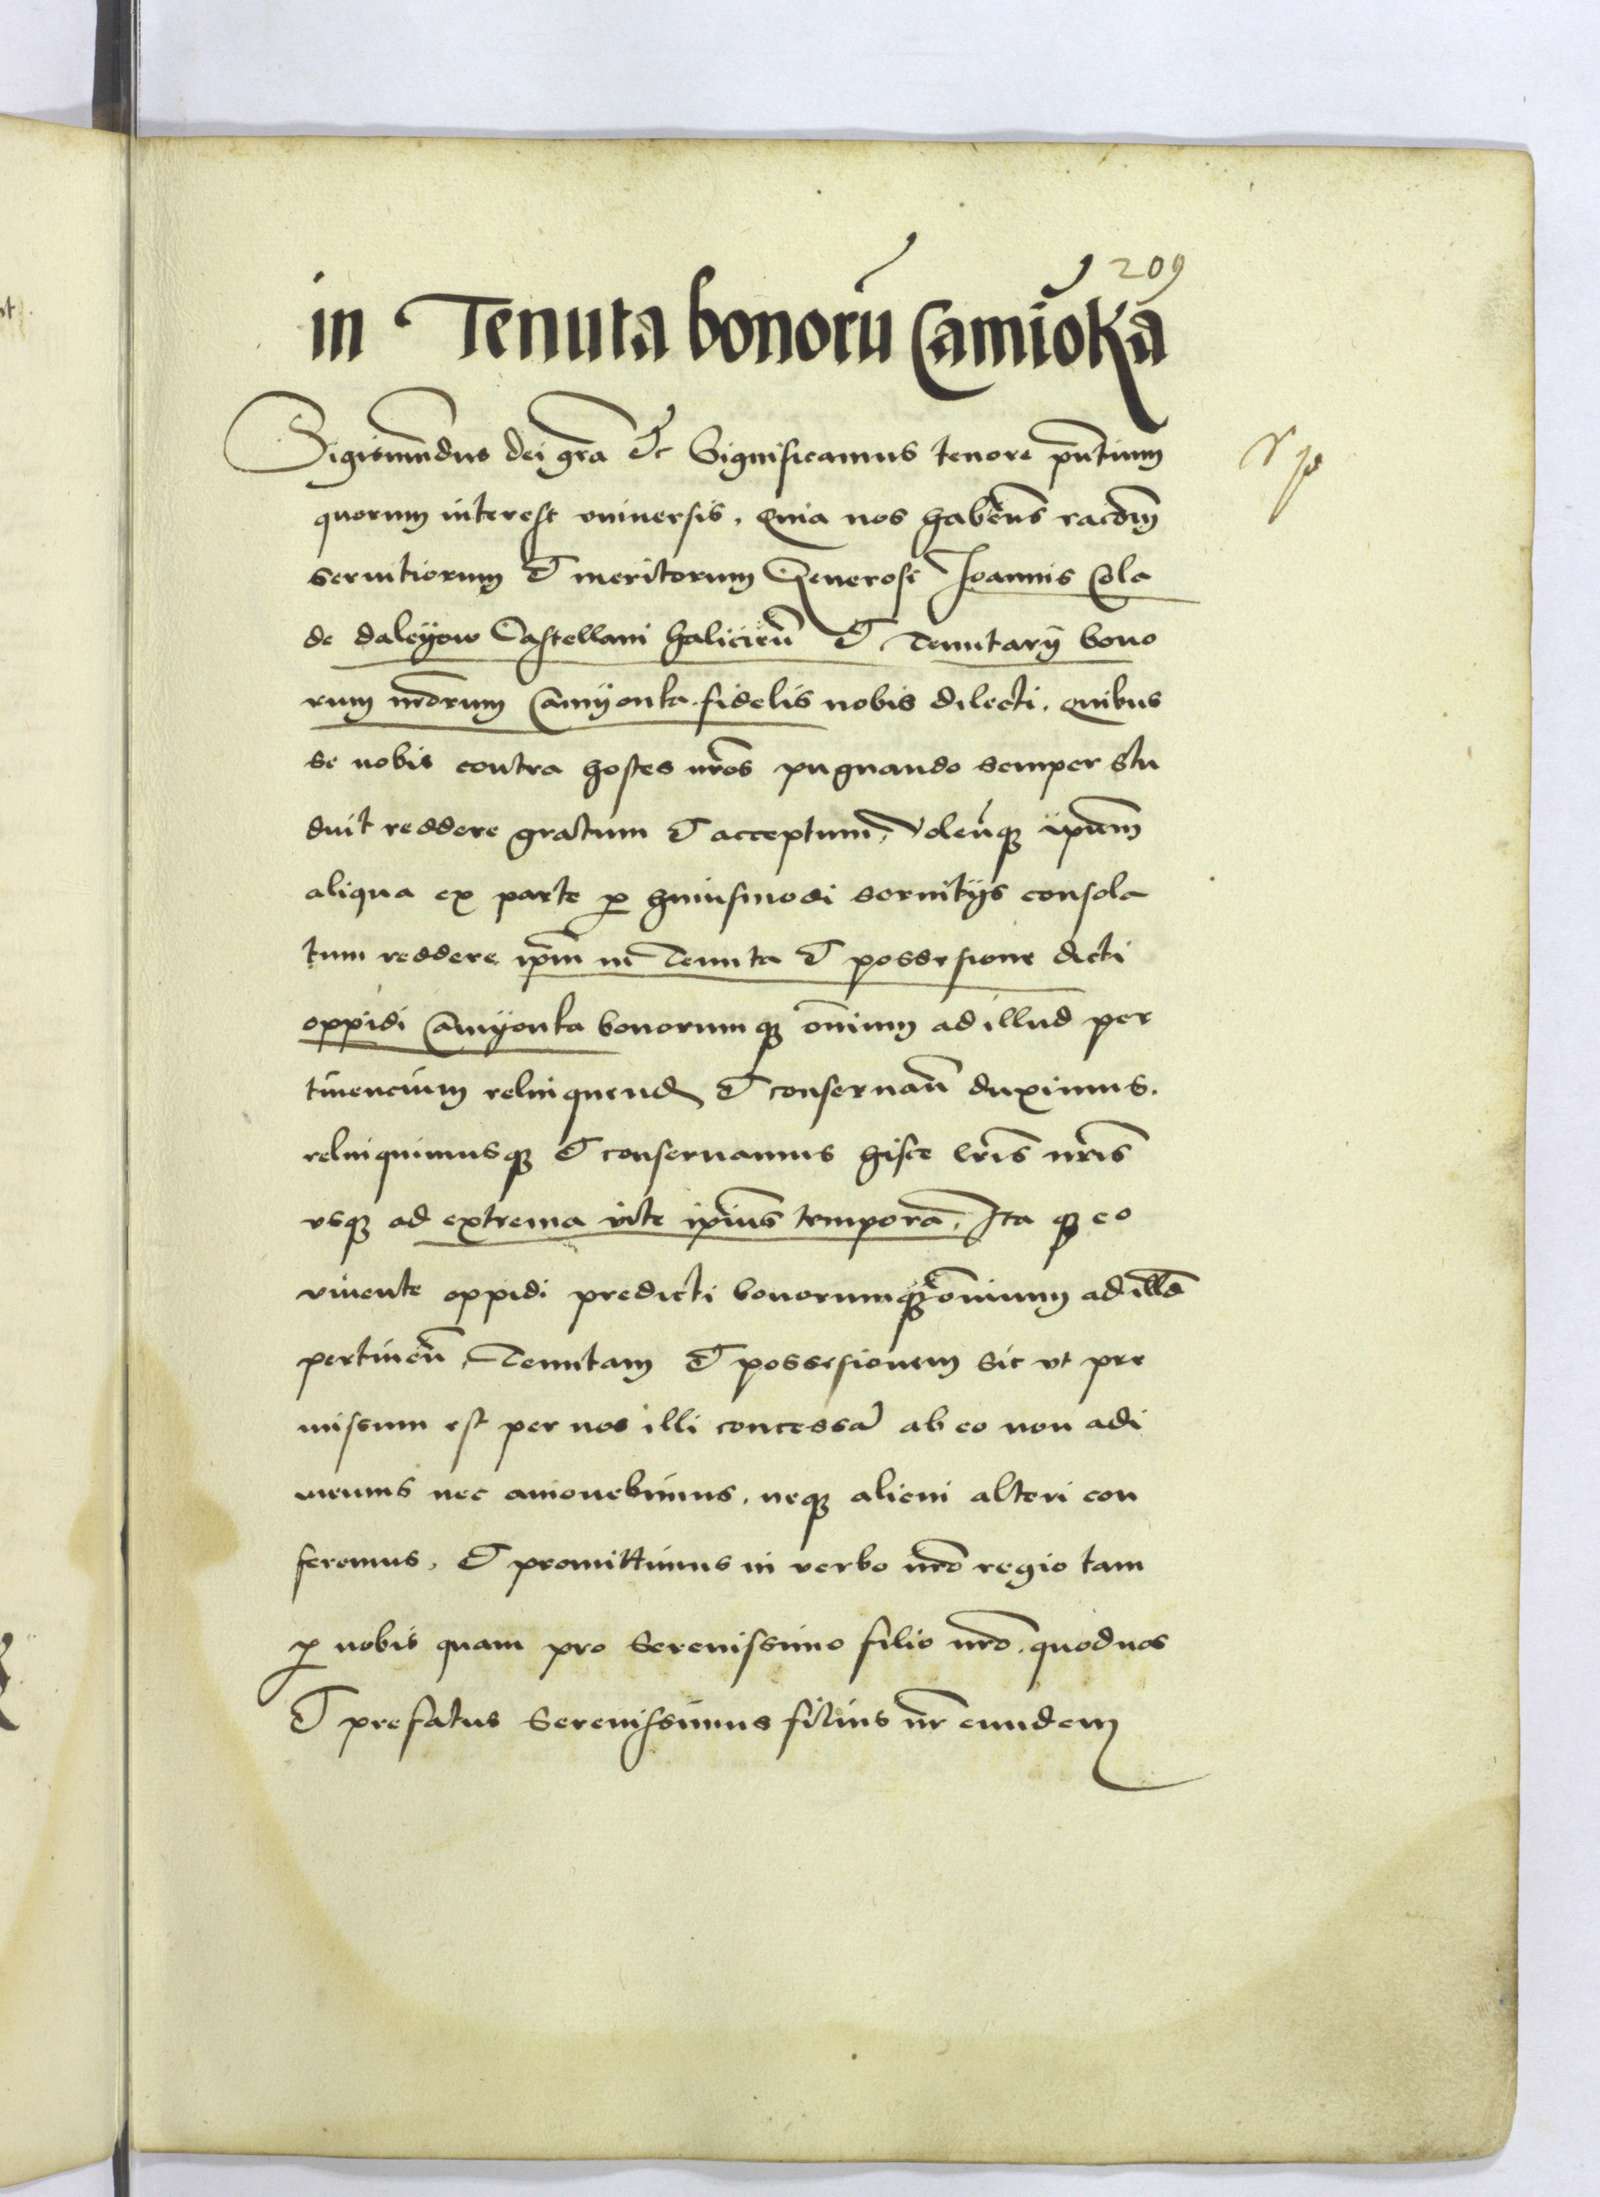 209
in Tenuta bonorū Camiōka
Sigismundus dei grā Etc Significamus tenore pntium
quorum interest vniversis, Quia nos habens racōm
seruitiorum Et meritorum Generosi Joannis Cola
de daleyow Castellani halicieñ Et Tenutarÿ bono
rum nrorum Camÿonka fidelis nobis dilecti, quibus
se nobis contra hostes nros pugnando semper stu
duit reddere gratum Et acceptum, volensq ipsum
aliqua ex parte p huiusmodi seruitÿs consola
tum reddere ipm in Tenuta Et possessione dicti
oppidi Camÿonka bonorumq omnium ad illud per
tinencium relinquend Et conseruañ duximus.
relinquimusq Et conseruamus hisce lris nris
vsq ad extrema vite ipius tempora, Ita q eo
viuente oppidi predicti bonorumq omnium ad illd
pertineñ, Tenutam Et possessionem sic vt pre
missum est per nos illi concessā ab eo non adi
memus nec amouebimus, neq alicui alteri con
feremus, Et promittimus in verbo nro regio tam
p nobis quam pro Serenissimo filio nro, quod nos
Et prefatus Serenissimus filius nr eundem